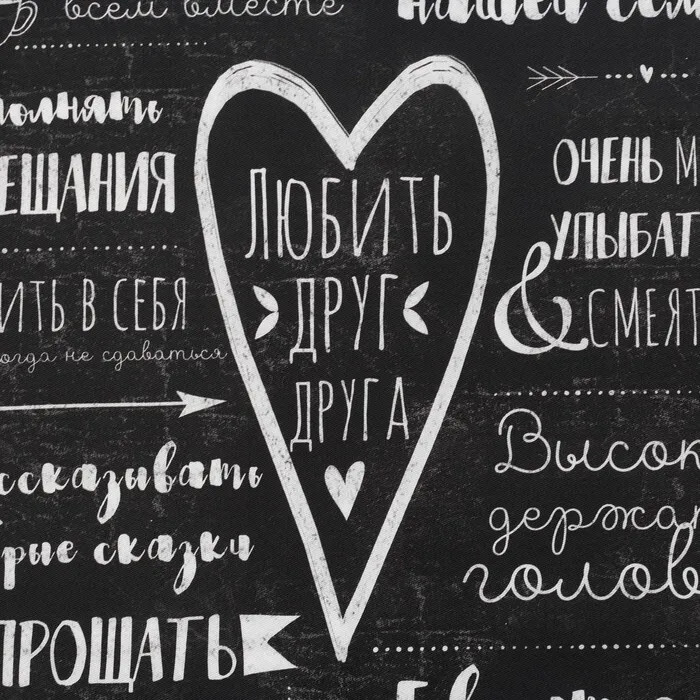 всем вместе
нашей сем
полнять
ЕЩАНИЯ
ИТЬ В СЕБЯ
огда не сдаваться
ссказывать
рые сказки
ПРОЩАТЬ
ЛЮБИТЬ
ДРУГ
ДРУГА
ОЧЕНЬ М
УЛЫБАТ
& СМЕЯТ
Высок
держа
голов